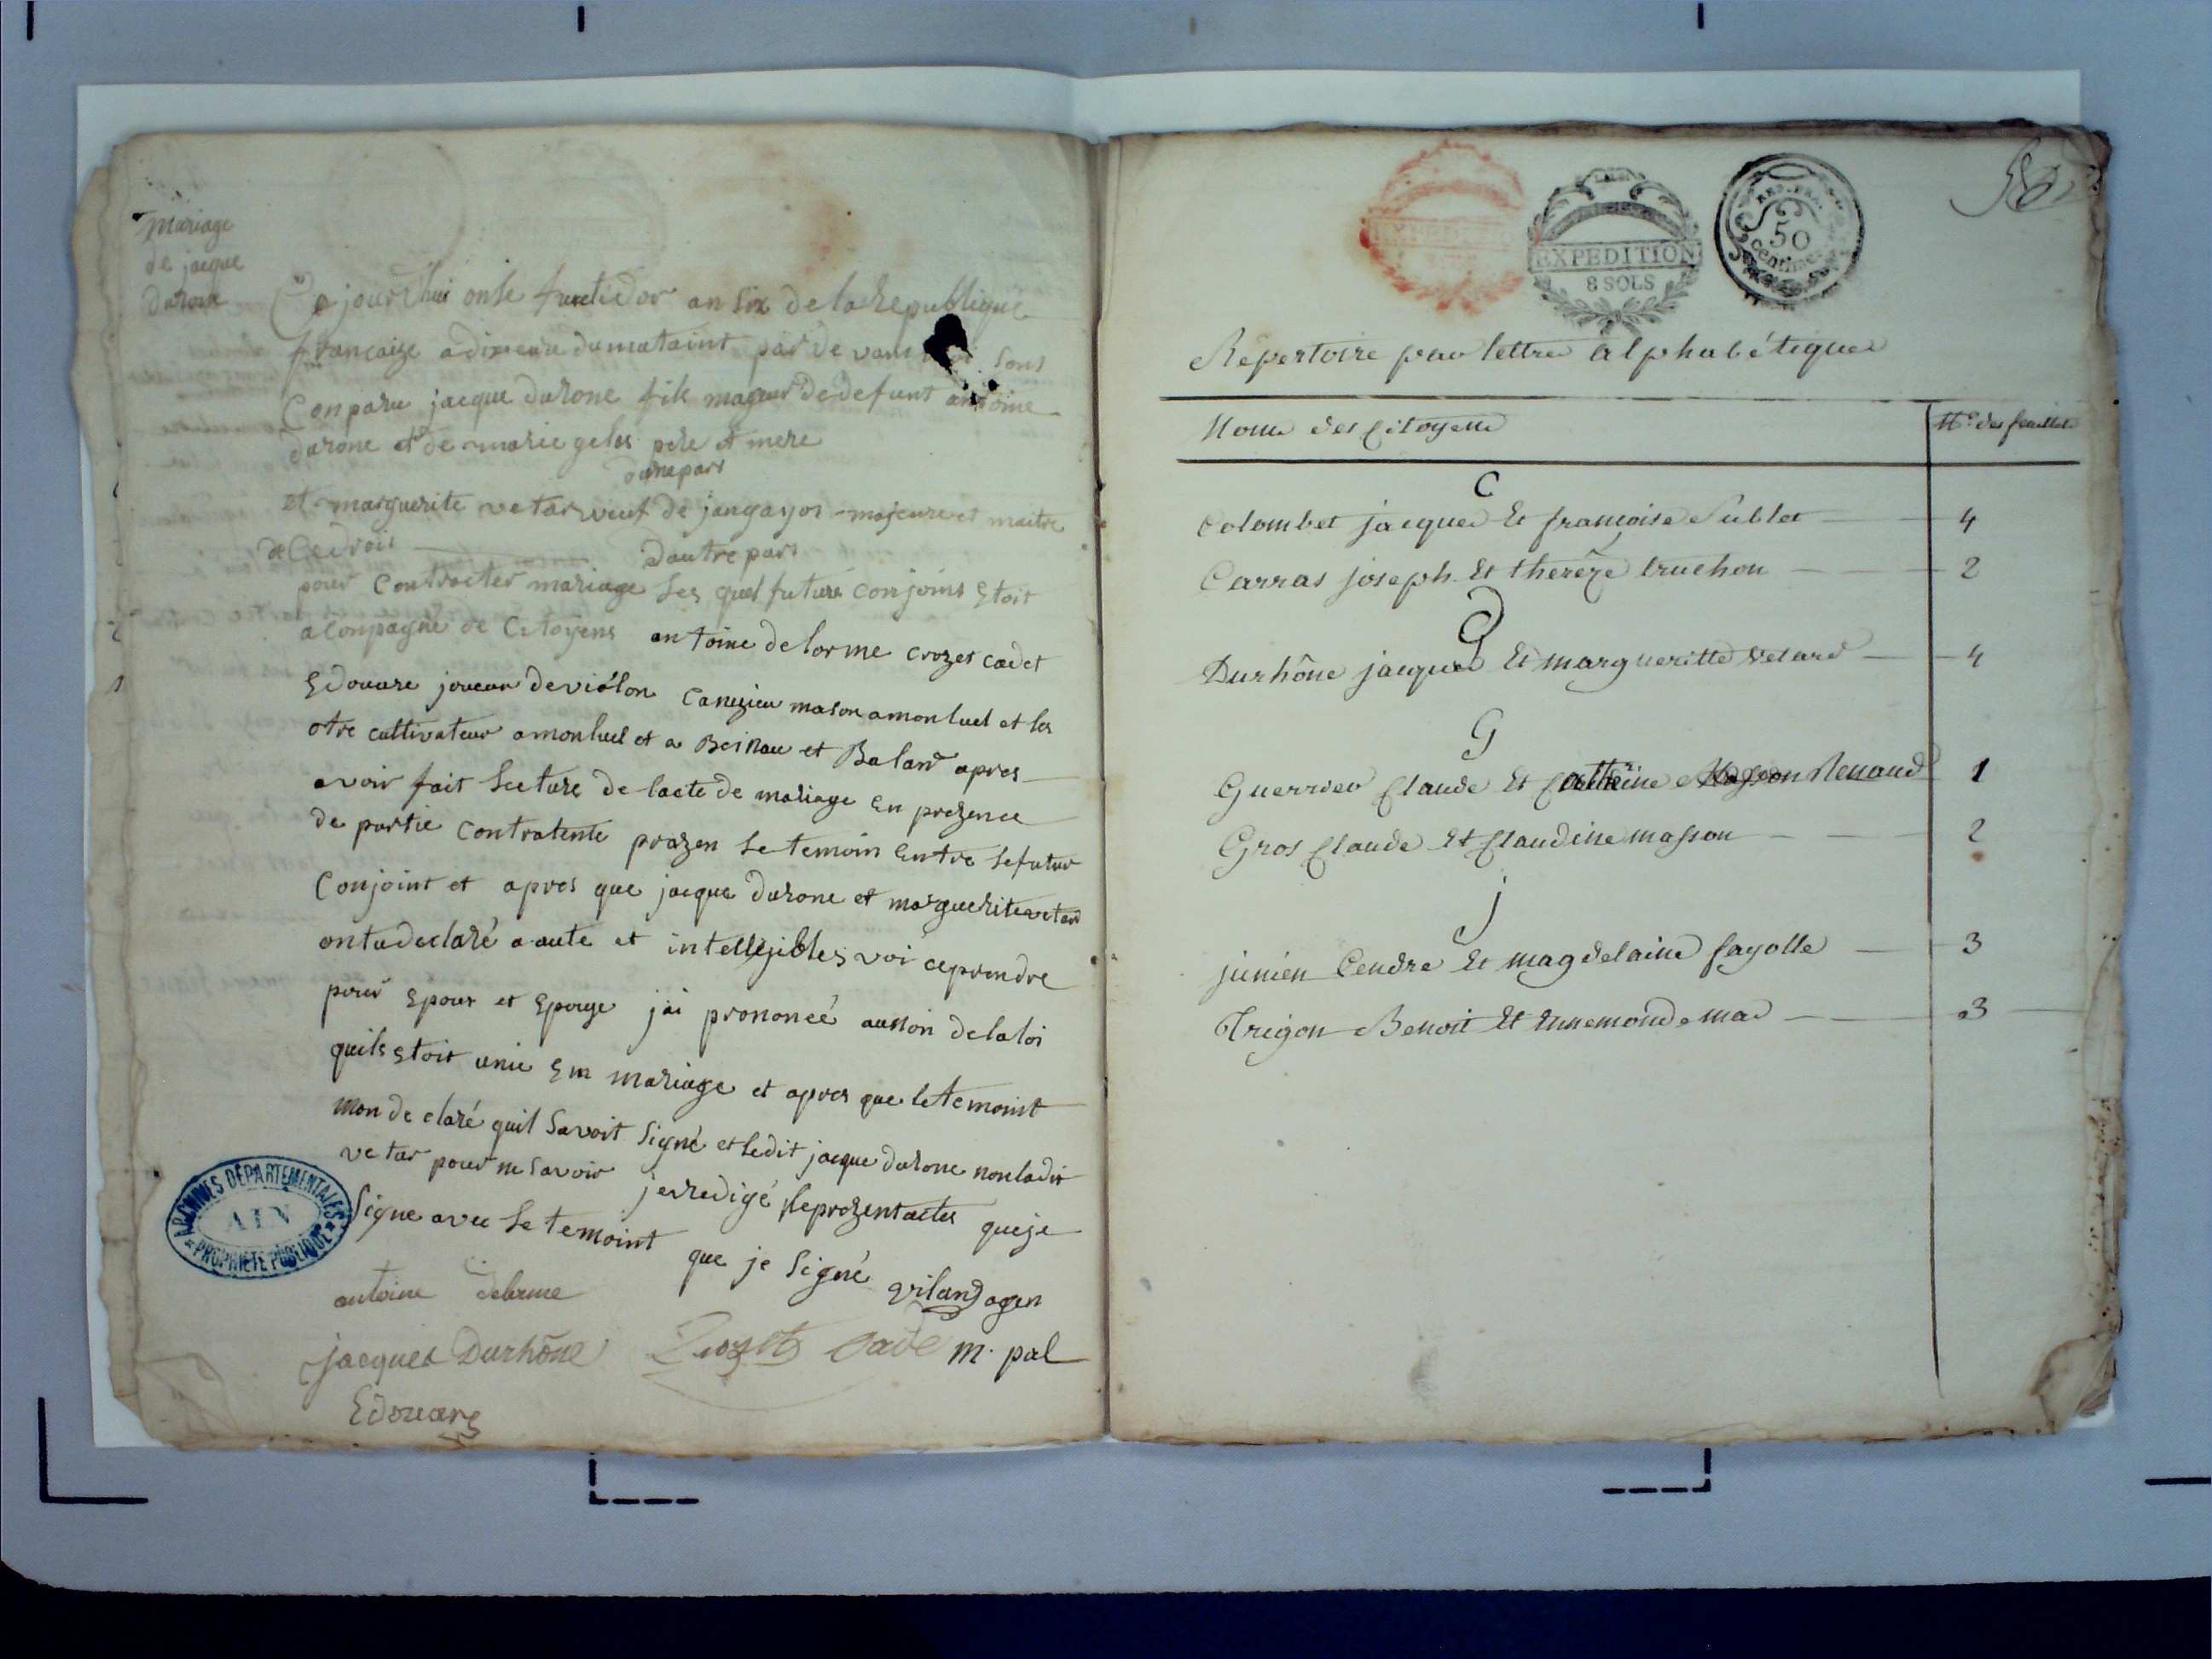 Mariage
de jacque
durone
Ce jourdhui onse fructidor an six de la Republique
francaize a dix eure du mataint par de vant sons
Conparu jacque durone fils mageur de defunt antoine
durone et de marie geles pere et mere
dune part
et marguerite vetar veuf de jangayot majeure et maitre
de Ce drois dautre part
pour Contracter mariage les quel futurs conjoins Etoit
aConpagne de Citoyens antoine delorme crozet cadet
Edouare joueur de viólon Canezieu mason a monluel et les
otre cultivateur a monluel et a Beinau et Baland apres
avoir fait lecture de lacte de mariage En prezence
de partie Contratente prazen le temoin Entre le futur
Conjoint et apres que jacque durone et marguerite vetard
onta declaré a aute et intellejibles voi ce prendre
pour Epour et Epouze jai prononcé au non de la loi
quils Etoit unie Em mariage et apres que le temoint
mon de claré quil savoit Signé et ledit jacque durone non ladit
vetar pour ne savoir je redigé le prezent actes que je
Signe avec le temoint que je Signé viland agen
antoine delorme
jacques Durhône Crozet Cadé m. pal
Edouare
ARCHIVES DÉPARTEMENTALES
AIN
PROPRIÉTÉ PUBLIQUE
EXPEDITION
8 SOLS
REP. FRA.
50
centimes
Répertoire par lettre alphabétique
Noms des Citoyens
N.º des feuillets
C
Colombet jacques Et francoise Sublet 4
Carras joseph Et therèze truchon 2
D
Durhône jacques Et margueritte Vetard 4
G
Guerrier Claude Et Catherine Masson Renaud 1
Gros Claude Et Claudine masson 2
J
junien Cendre Et magdelaine fayolle 3
Trigon Benoit Et Ennemonde mas 3